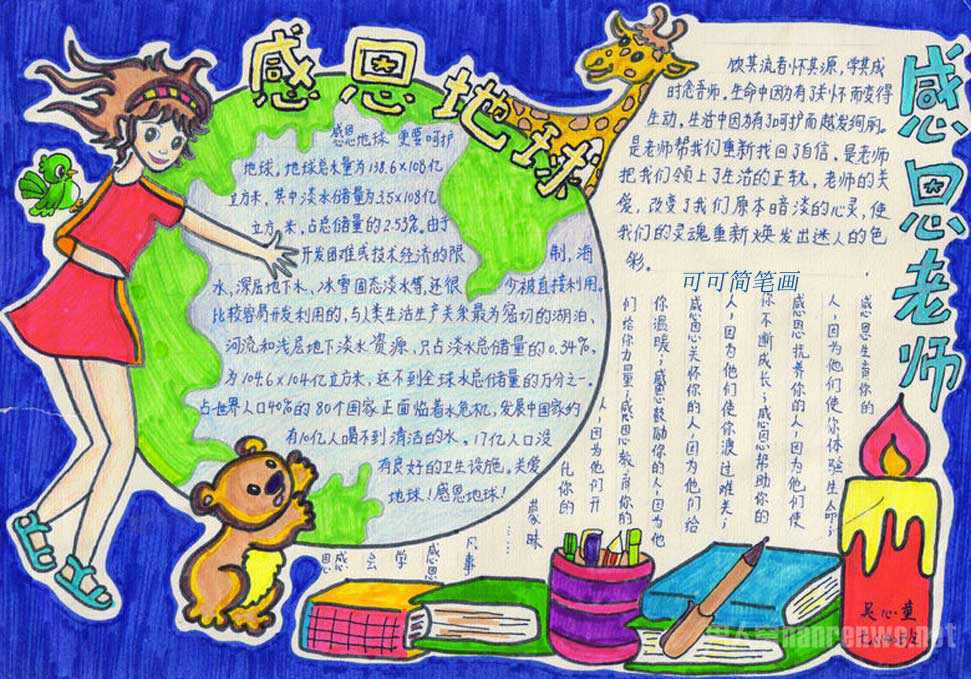 感恩地球
感恩地球 更要呵护
地球。地球总水量为138.6×108亿
立方米，其中淡水储量为35×108亿
立方米，占总储量的2.53%。由于
开发困难或技术经济的限制，海
水、深层地下水、冰雪固态淡水等，还很少被直接利用。
比较容易开发利用的、与人类生活生产关系最为密切的湖泊、
河流和浅层地下淡水资源，只占淡水总储量的0.34%，
为104.6×104亿立方米，还不到全球水总储量的万分之一。
占世界人口40%的80个国家正面临着水危机，发展中国家约
有10亿人喝不到清洁的水。17亿人口没
有良好的卫生设施。关爱
地球！感恩地球！
感恩老师
饮其流者怀其源，学其成
时念吾师。生命中因为有了关怀而变得
生动，生活中因为有了呵护而越发绚丽。
是老师帮我们重新找回了自信，是老师
把我们领上了生活的正轨，老师的关
爱，改变了我们原本暗淡的心灵，使
我们的灵魂重新焕发出迷人的色
彩。
可可简笔画
感恩生育你的
人，因为他们使你体验生命；
感恩抚养你的人，因为他们使
你不断成长；感恩帮助你的
人，因为他们使你渡过难关；
感恩关怀你的人，因为他们给
你温暖；感恩鼓励你的人，因为他
们给你力量；感恩教育你的
人，因为他们开
化你的
蒙昧
……
凡事
感恩
学
会
感
恩
nanrenwo.net